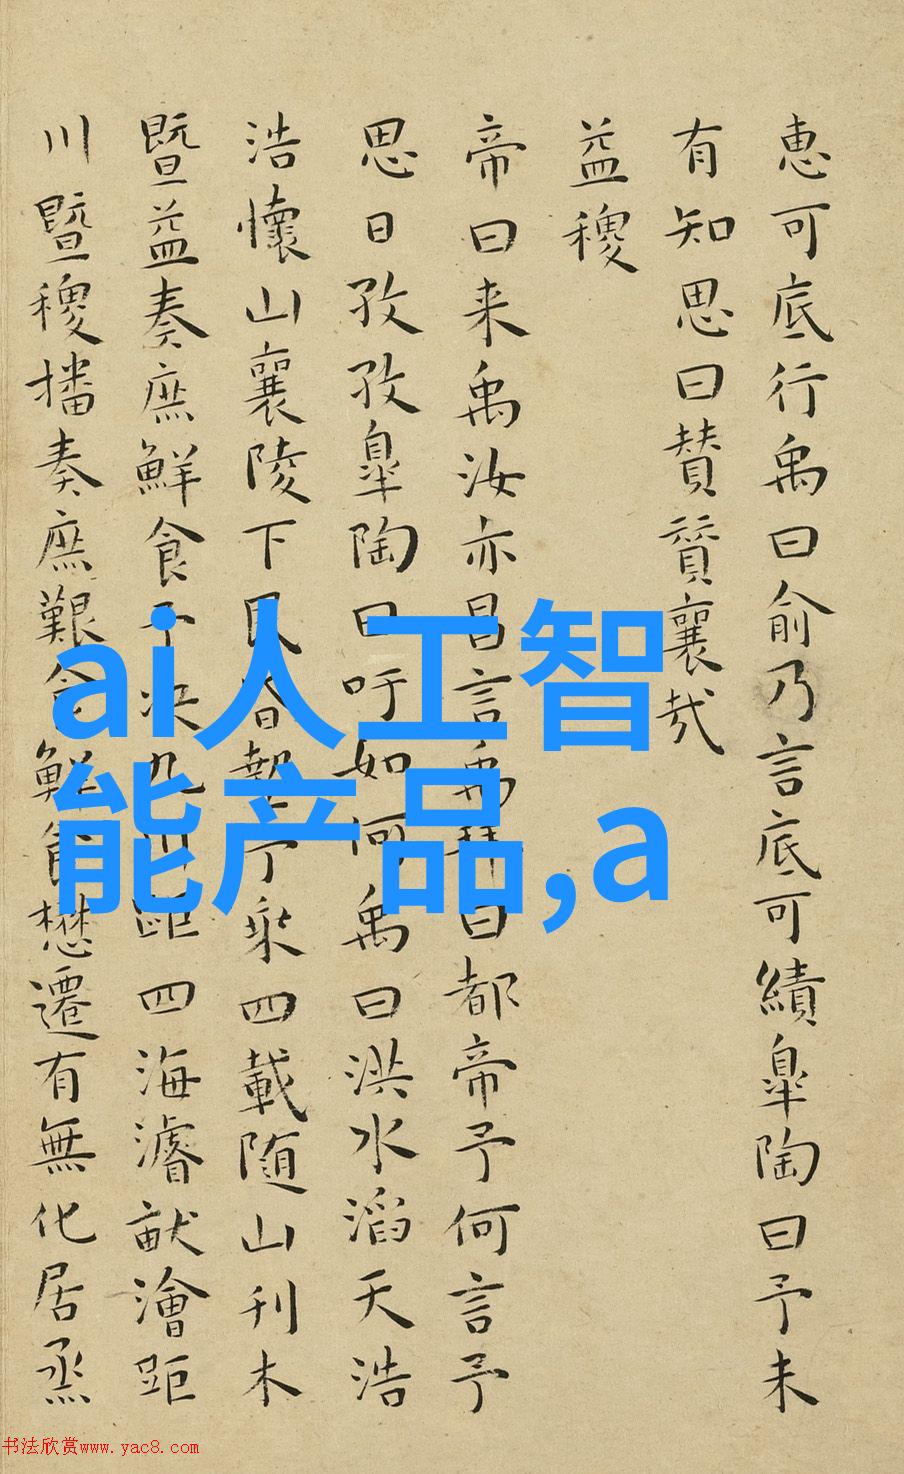 惠可底行禹曰俞乃言底可績皐陶曰予未
有知思曰賛賛襄哉
益稷
帝曰来禹汝亦昌言禹拜曰都帝予何言予
思日孜孜皐陶曰吁如何禹曰洪水滔天浩
浩懷山襄陵下民昏墊予乘四載随山刊木
暨益奏庶鮮食予决九川距四海濬畎澮距
川暨稷播奏庶艱食鮮食懋遷有無化居烝
ai人工智
能产品,a
书法欣赏www.yac8.com